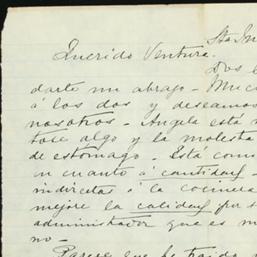 Sta In
Querido Ventura.
Dos l
darte un abrazo - Muc
á los dos y deseamos
nosotros - Angela está
tose algo y la molesta
de estómago - Está com
en cuanto á cantidad -
indirectas á la cocinera
mejore la calidad por s
administrador que es m
no -
Parece que ha traido